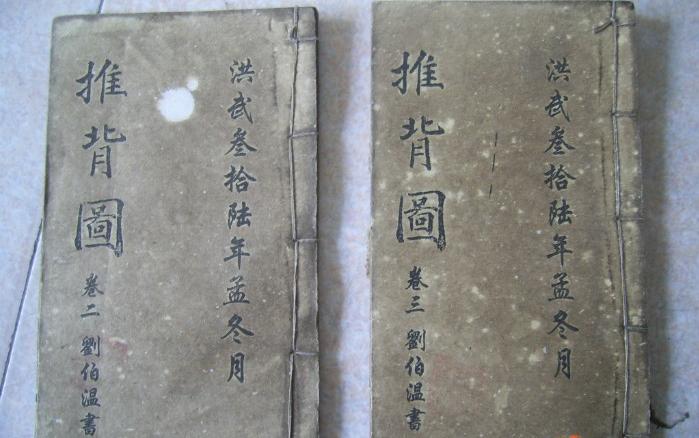 洪武叁拾陆年孟冬月
推背圖
卷二 劉伯温書
洪武叁拾陆年孟冬月
推背圖
卷三 劉伯温書